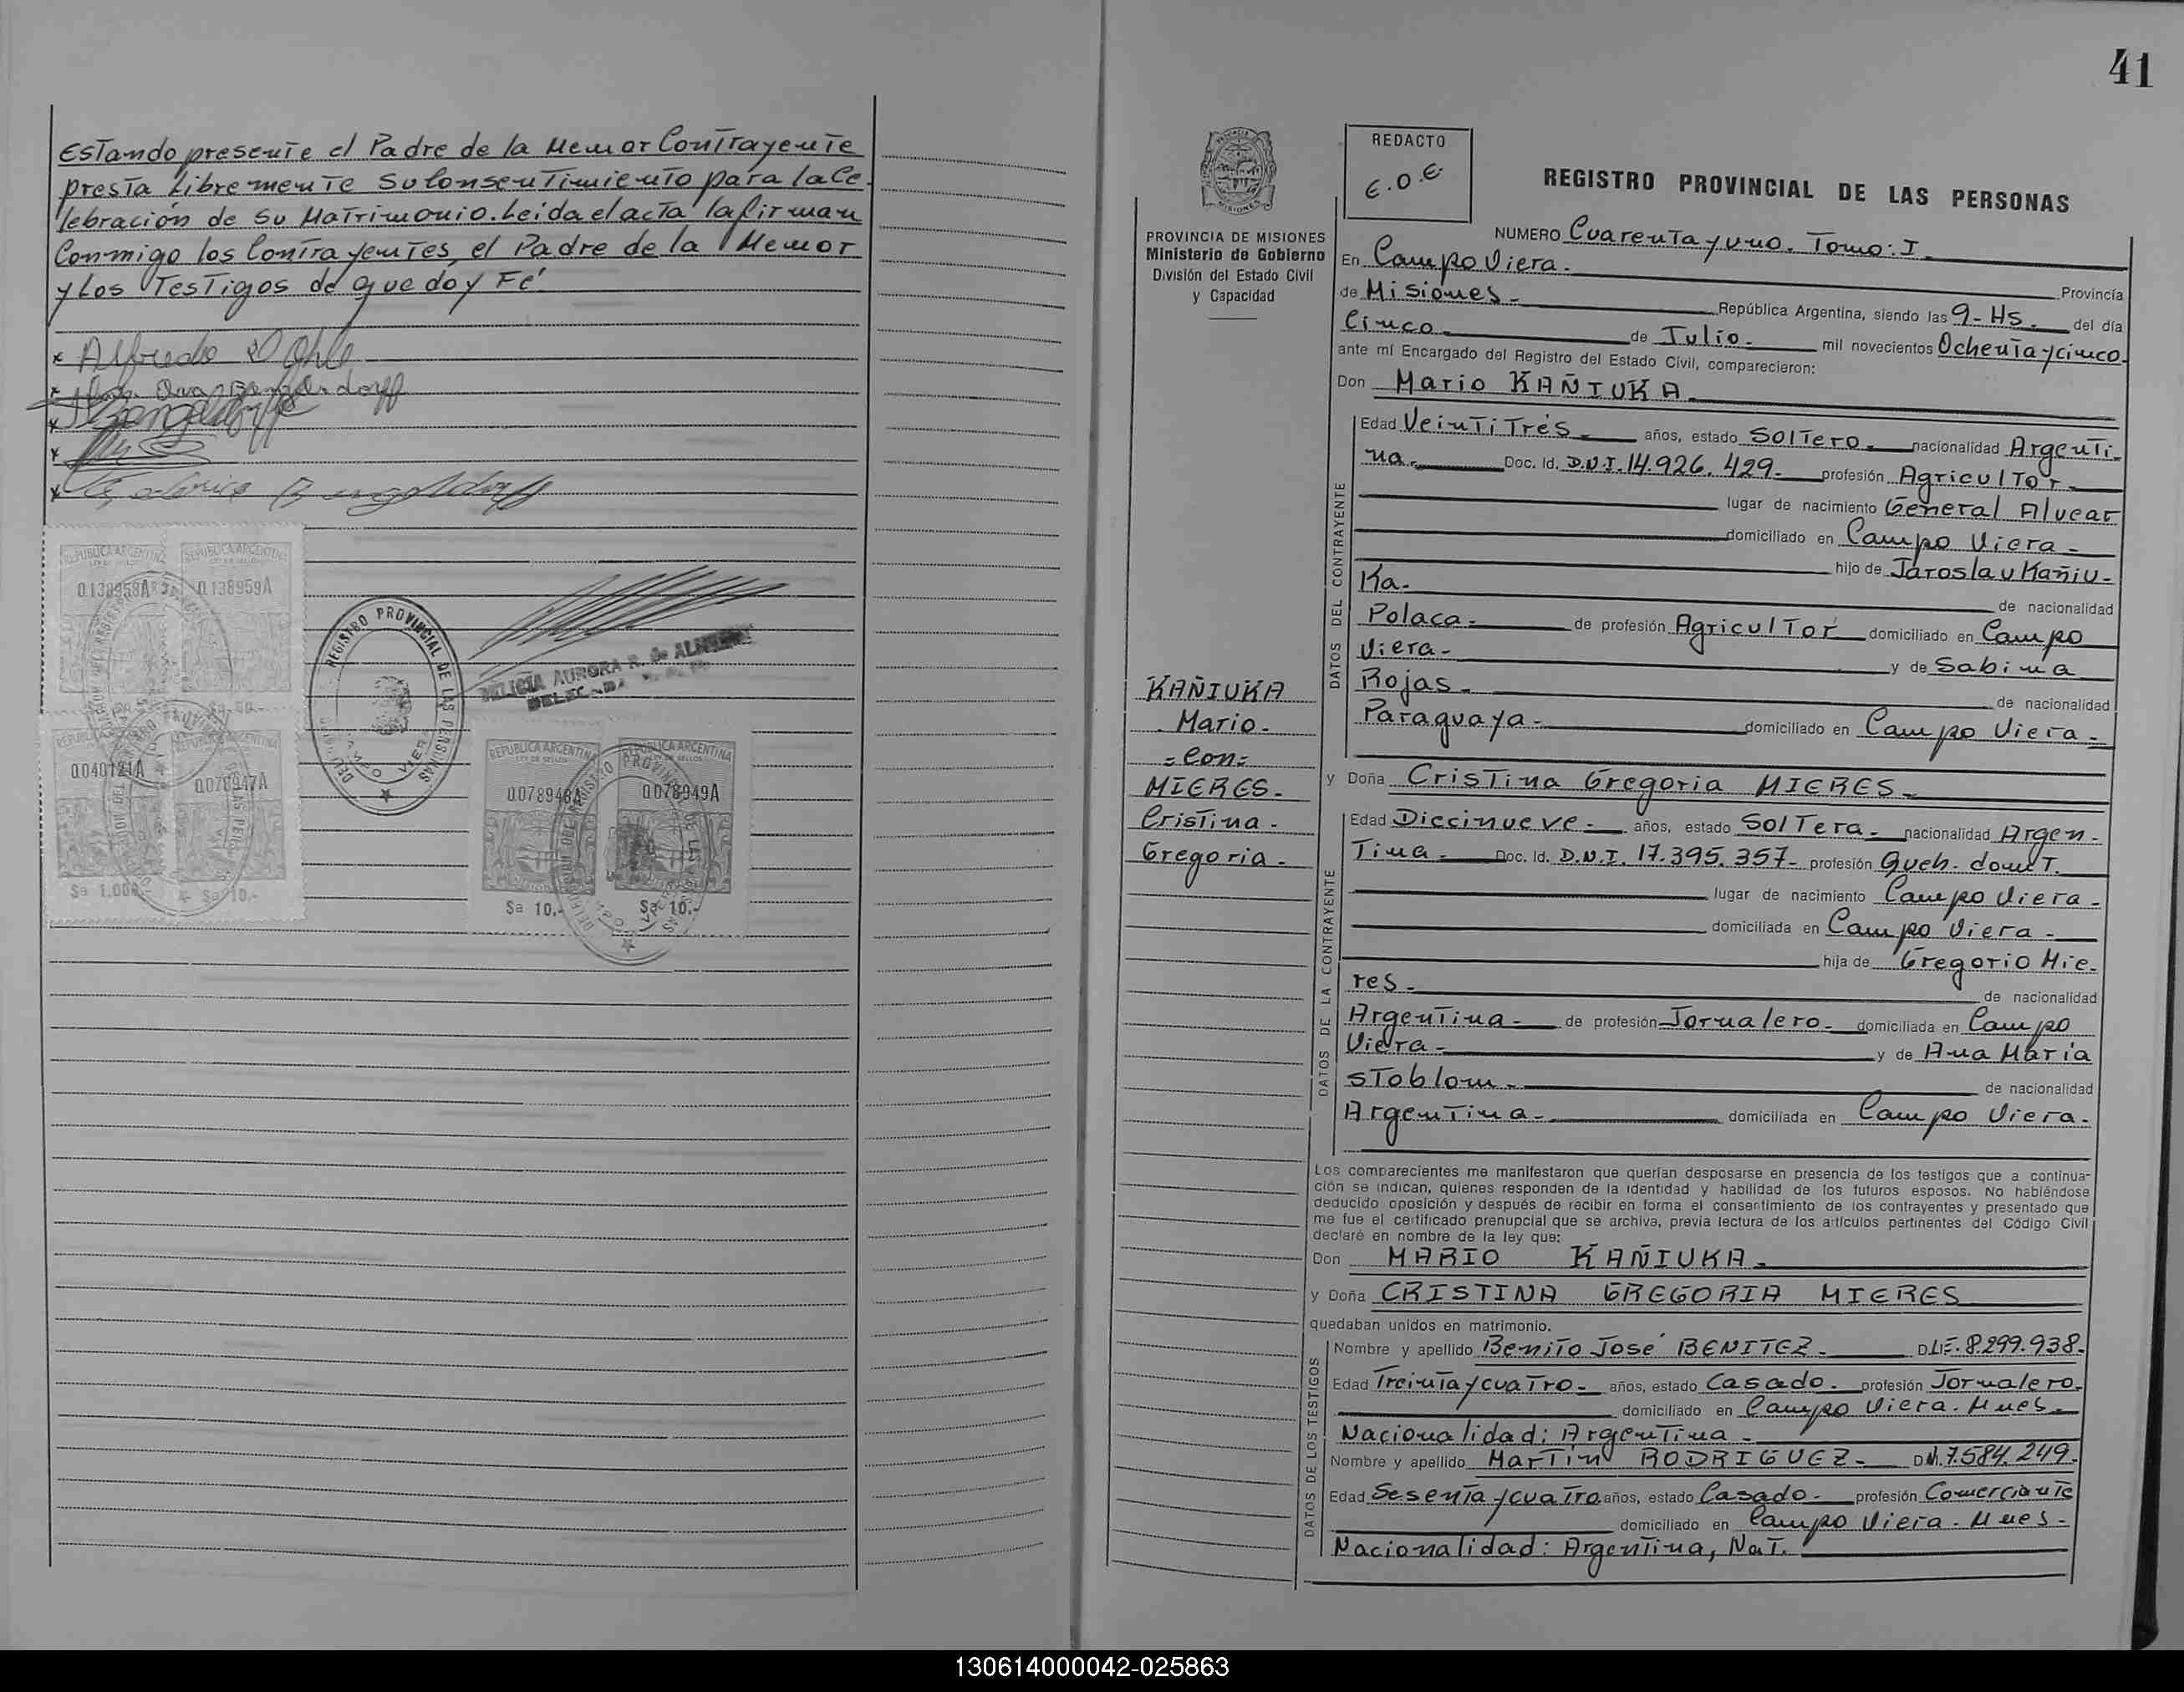 Estando presente el Padre de la Menor Contrayente
presta Libremente Su Consentimiento para la Ce
lebración de su Matrimonio. Leida el acta la firman
Conmigo los Contrayentes, el Padre de la Menor
y Los Testigos de que doy Fé
x Alfredo
REPUBLICA ARGENTINA
REPUBLICA ARGENTINA
0.138958A
0.138959A
REGISTRO PROVINCIAL DE LAS PERSONAS
CAMPO VIERA
DELICIA AURORA R. de
REPUBLICA ARGENTINA
0.040121A
0.078947A
$a 1.000.-
$a 10.-
REPUBLICA ARGENTINA
REPUBLICA ARGENTINA
0.078948A
0.078949A
$a 10.-
$a 10.-
41
PROVINCIA DE MISIONES
Ministerio de Gobierno
División del Estado Civil
y Capacidad
KAÑIUKA
Mario.-
= Con =
MIERES.-
Cristina.-
Gregoria.-
REDACTO
E.O.E.
REGISTRO PROVINCIAL DE LAS PERSONAS
NUMERO Cuarenta y uno. Tomo: I.
En Campo Viera.- Provincia
de Misiones.- República Argentina, siendo las 9- Hs. del día
Cinco.- de Julio.- mil novecientos Ochenta y cinco.
ante mí Encargado del Registro del Estado Civil, comparecieron:
Don Mario KAÑIUKA.-
DATOS DEL CONTRAYENTE
Edad Veinti Trés.- años, estado Soltero.- nacionalidad Argenti-
na.- Doc. Id. D.N.I. 14.926.429.- profesión Agricultor.-
lugar de nacimiento General Alvear
domiciliado en Campo Viera.-
hijo de Jaroslav Kañiu-
Ka.- de nacionalidad
Polaca.- de profesión Agricultor domiciliado en Campo
Viera.- y de Sabina
Rojas.- de nacionalidad
Paraguaya.- domiciliado en Campo Viera.-
y Doña Cristina Gregoria MIERES.-
DATOS DE LA CONTRAYENTE
Edad Diecinueve.- años, estado Soltera.- nacionalidad Argen-
tina.- Doc. Id. D.N.I. 17.395.357- profesión Queh. domt.
lugar de nacimiento Campo Viera.-
domiciliada en Campo Viera.-
hija de Gregorio Mie-
res.- de nacionalidad
Argentina.- de profesión Jornalero.- domiciliada en Campo
Viera.- y de Ana María
Stoblom.- de nacionalidad
Argentina.- domiciliada en Campo Viera.-
Los comparecientes me manifestaron que querían desposarse en presencia de los testigos que a continua-
ción se indican, quienes responden de la identidad y habilidad de los futuros esposos. No habiéndose
deducido oposición y después de recibir en forma el consentimiento de los contrayentes y presentado que
me fue el certificado prenupcial que se archiva, previa lectura de los artículos pertinentes del Código Civil
declaré en nombre de la ley que:
Don MARIO KAÑIUKA.-
y Doña CRISTINA GREGORIA MIERES
quedaban unidos en matrimonio.
DATOS DE LOS TESTIGOS
Nombre y apellido Benito José BENITEZ.- D.LE. 8.299.938.
Edad Treinta y cuatro.- años, estado Casado.- profesión Jornalero.
domiciliado en Campo Viera. Mnes.-
Nacionalidad: Argentina.-
Nombre y apellido Martín RODRIGUEZ.- D.M. 7.584.249.
Edad Sesenta y cuatro años, estado Casado.- profesión Comerciante
domiciliado en Campo Viera. Mnes.-
Nacionalidad: Argentina, Nat.
130614000042-025863